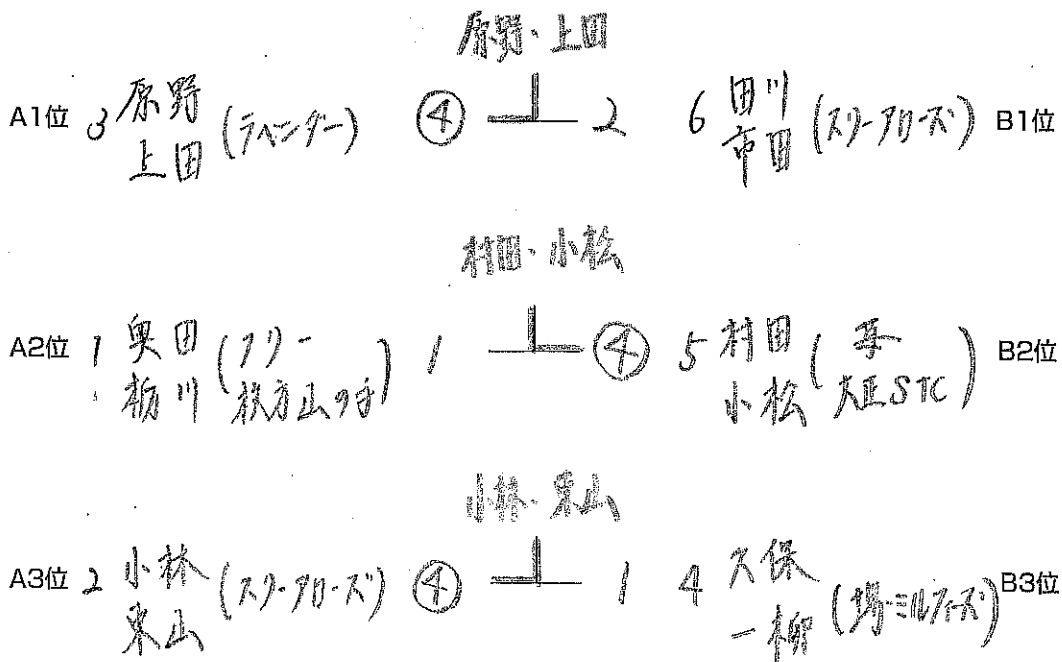 原野・上田
A1位 3 原野 上田 (ラベンダー) ④ 2 6 田川 市田 (スリーアローズ) B1位
村田・小松
A2位 1 奥田 栃川 (フリー 枚方山の手) 1 ④ 5 村田 小松 ( 大正STC) B2位
小林・東山
A3位 2 小林 東山 (スリーアローズ) ④ 1 4 久保 一柳 B3位